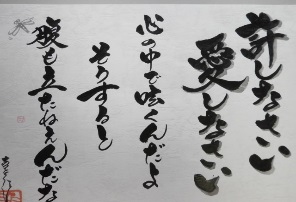 許しなさい
愛しなさい
心の中で呟くんだよ
そうすると
腹も立たねえんだな